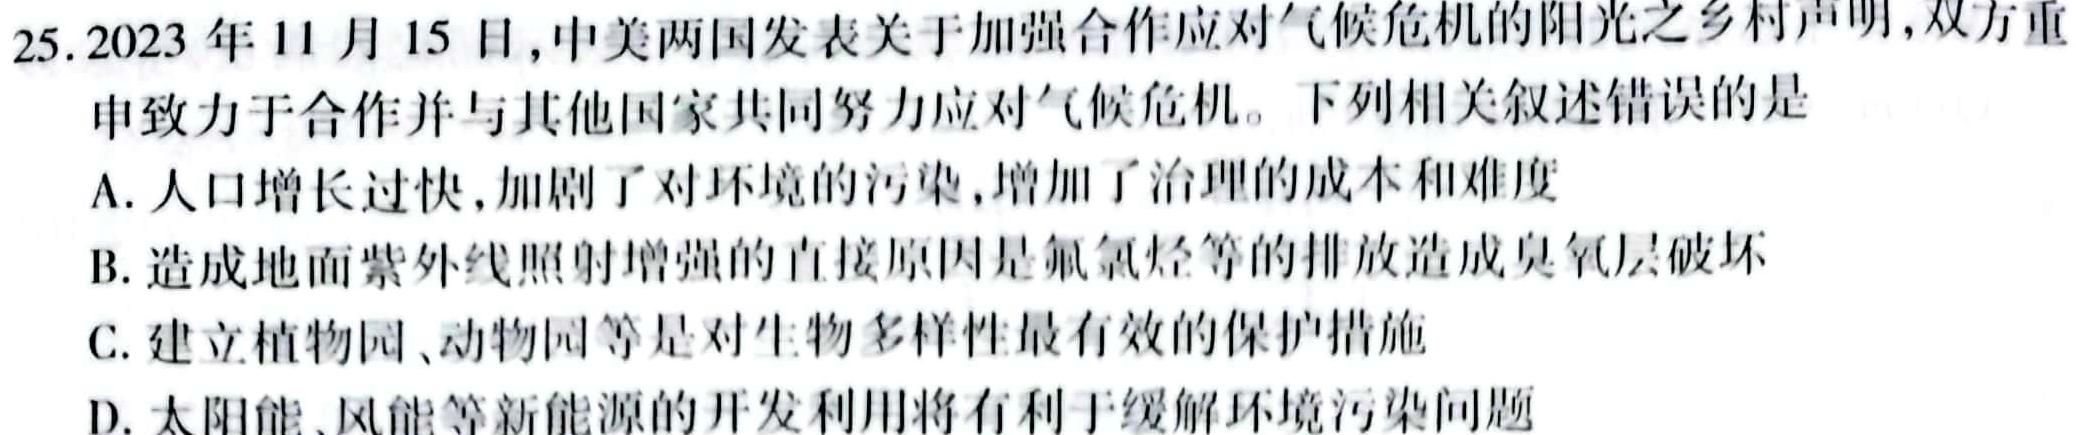 25. 2023 年 11 月 15 日,中美两国发表关于加强合作应对气候危机的阳光之乡村声明,双方重
申致力于合作并与其他国家共同努力应对气候危机。下列相关叙述错误的是
A. 人口增长过快,加剧了对环境的污染,增加了治理的成本和难度
B. 造成地面紫外线照射增强的直接原因是氟氯烃等的排放造成臭氧层破坏
C. 建立植物园、动物园等是对生物多样性最有效的保护措施
D. 太阳能、风能等新能源的开发利用将有利于缓解环境污染问题